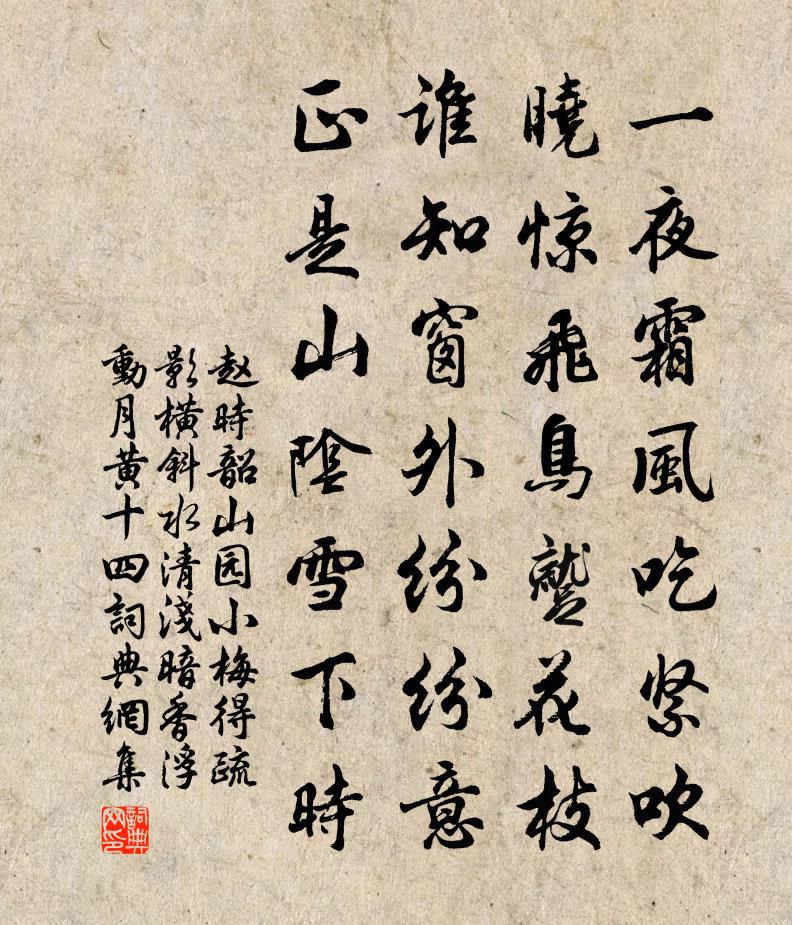 一夜霜風吃紧吹
曉惊飛鳥蹵花枝
谁知窗外纷纷意
正是山陰雪下時
赵時韶山园小梅得疏
影橫斜水清淺暗香浮
動月黄十四詞典網集
詞典
网印